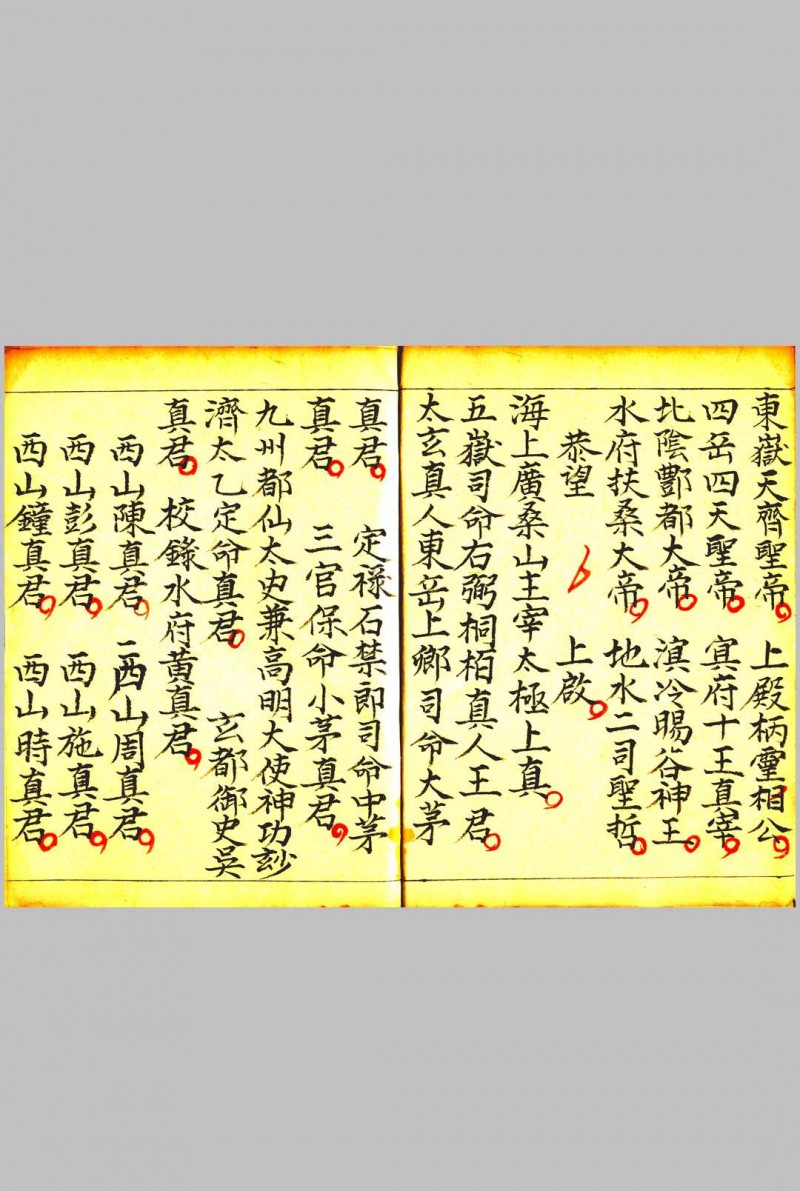 東嶽天齊聖帝。上殿柄靈相公。
四岳四天聖帝。冥府十王真宰。
北陰酆都大帝。溟泠晹谷神王。
水府扶桑大帝。地水二司聖哲。
恭望 上啟。
海上廣桑山主宰太極上真。
五嶽司命右弼桐栢真人王君。
太玄真人東岳上鄉司命大茅
真君。定祿右禁郎司命中茅
真君。三官保命小茅真君。
九州都仙太史兼高明大使神功玅
濟太乙定命真君。玄都御史吳
真君。校錄水府黃真君。
西山陳真君。二西山周真君。
西山彭真君。西山施真君。
西山鐘真君。西山時真君。